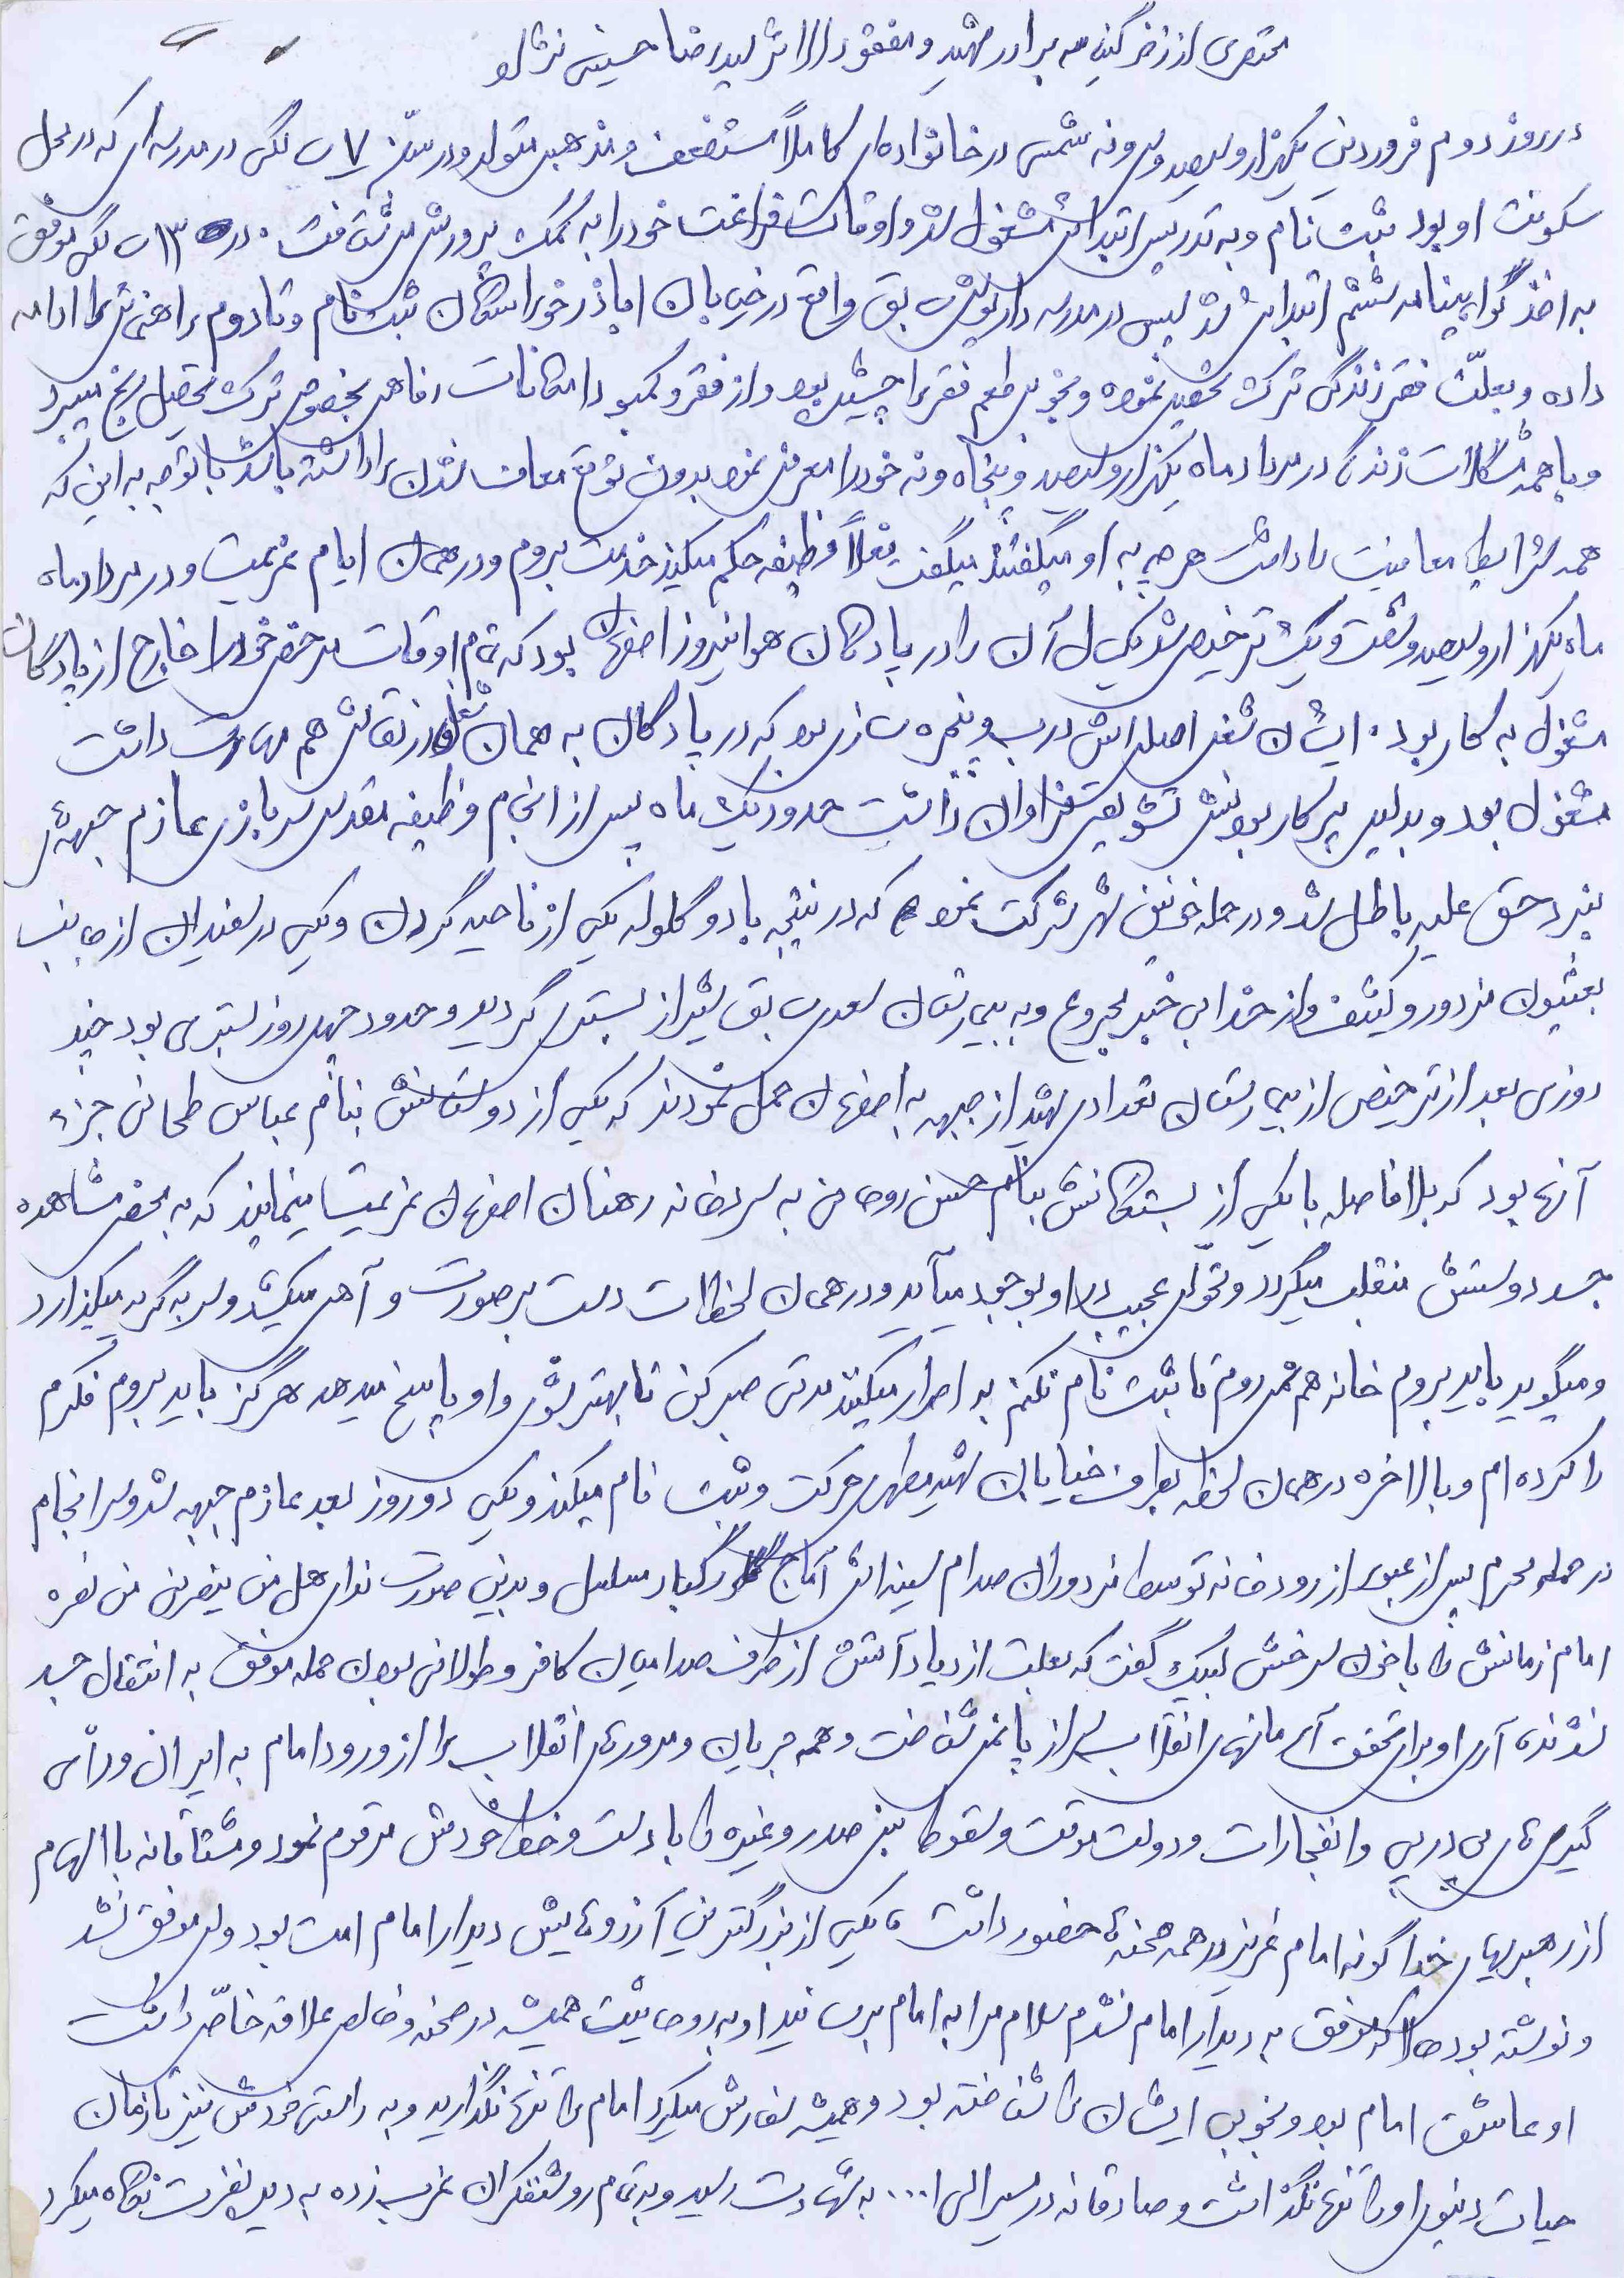 مختصری از زندگینامه برادر شهید و مفقودالاثر سیدرضا حسینی نژاد
در روز دوم فروردین یکهزار و سیصد و سی و نه شمسی در خانواده‌ای کاملاً مستضعف و مذهبی متولد و در سنّ ۷ سالگی در مدرسه‌ای که در محل
سکونت او بود ثبت نام و به تدریس ابتدائی مشغول شد و اوقات فراغت خود را به کمک پدرش می‌شتافت. در ۱۳ سالگی موفق
به اخذ گواهینامه ششم ابتدایی شد سپس در مدرسه داریوش سابق واقع در خیابان اباذر خوراسگان ثبت نام و تا دوم راهنمایی را ادامه
داده و بعلّت فقر زندگی ترک تحصیل نموده و بخوبی طعم فقر را چشیده بود و از فقر و کمبود امکانات رفاهی بخصوص ترک تحصیل رنج میبرد
و با همه مشگلات زندگی در مرداد ماه یکهزار و سیصد و پنجاه و نه خود را معرفی نمود بدون توقع معاف شدن را داشته باشد با توجه به این که
همه شرایط معافیت را داشت هرچه به او میگفتند میگفت فعلاً وظیفه حکم میکند خدمت بروم و در همان ایام عزیمت و در مرداد ماه
ماه یکهزار و سیصد و شصت و یک ترخیص شد یکسال آن را در پادگان هوانیروز اصفهان بود که تمام اوقات مرخصی خود را خارج از پادگان
مشغول به کار بود. ایشان شغل اصلی‌اش درب و پنجره سازی بود که در پادگان به همان شغل و رزقش هم مهارت داشت
مشغول بود و بدلیل پرکار بودنش تشویقی فراوان داشت حدود یک ماه پس از انجام وظیفه مقدس سربازی عازم جبهه‌های
نبرد حق علیه باطل شد و در حمله خونین شهر شرکت نمود که در نتیجه با دو گلوله یکی از ناحیه گردن و یکی در لفیران از جانب
بعثیون مزدور و کثیف و از خدا بی خبر مجروح و به بیمارستان سعدی سابق شیراز بستری گردید و حدود چهل روز بستری بود چند
روزی بعد از ترخیص از بیمارستان تعدادی شهید از جبهه به اصفهان حمل نمودند که یکی از دوستانش بنام عباس طحانی جزء
آنها بود که بلافاصله با یکی از بستگانش بنام حسین روحانی به سردخانه رهنان اصفهان عزیمت مینمایند که به محض مشاهده
جسد دوستش منقلب میگردد و تحوّل عجیبی در او بوجود میآید و در همان لحظات دست بر صورت و آهی میکشد و سر به گریه میگذارد
و میگوید باید بروم خانه هم نمی‌روم تا ثبت نام نکنم به اصرار میکنند مدتی صبر کن تا بهتر بشوی و او پاسخ میدهد هرگز باید بروم فکرم
را کرده‌ام و بالاخره در همان لحظه بطرف خیابان شهید مطهری حرکت و ثبت نام میکند و یکی دو روز بعد عازم جبهه شد و سرانجام
در حمله محرم پس از عبور از رودخانه توسط مزدوران صدام سینه‌اش آماج رگبار مسلسل و بدین صورت ندای هل من ینصرنی من نصره
امام زمانش را با خون سرخش لبیک گفت که بعلت ازدیاد آتش از طرف صدامیان کافر و طولانی بودن حمله موفق به انتقال جسد
نشدند، آری او برای تحقق آرمانهای انقلاب سر از پا نمی‌شناخت و همه جریان و مرورهای انقلاب را از ورود امام به ایران و رأی
گیری‌های پی در پی و انفجارات و دولت موقت و سقوط بنی صدر و غیره را با دست و خط خودش مرقوم نمود و مشتاقانه با الهام
از رهبریهای خداگونه امام عزیز در همه صحنه‌ها حضور داشت، یکی از بزرگترین آرزوهایش دیدار امام امت بود ولی موفق نشد
و نوشته بود حالا که موفق به دیدار امام نشدم سلام مرا به امام برسانید او به روحانیت همیشه در صحنه و خالص علاقه خاصّی داشت
او عاشق امام بود و بخوبی ایشان را شناخته بود و همیشه سفارش میکرد امام را تنها نگذارید و به راستی خودش نیز تا زمان
حیات دنیوی او را تنها نگذاشت و صادقانه در سیر الی ا... به شهادت رسید و به تمام روشنفکران غرب زده به دید نفرت نگاه میکرد